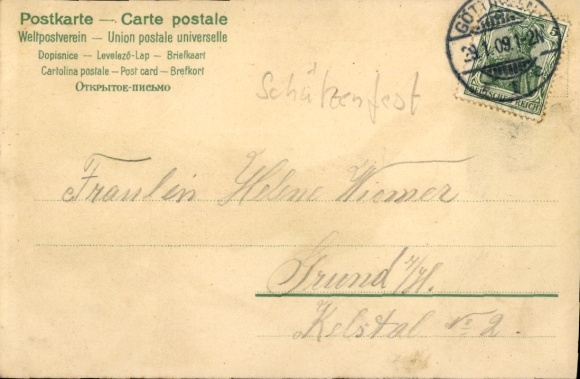 Postkarte — Carte postale
Weltpostverein — Union postale universelle
Dopisnice — Levelező-Lap — Briefkaart
Cartolina postale — Post card — Brefkort
Открытое-письмо
29.1.09.1-2N
5
DEUTSCHES REICH
Schützenfest
Fräulein Helene Wiemer
Grund a/H.
Kelstal No 2.